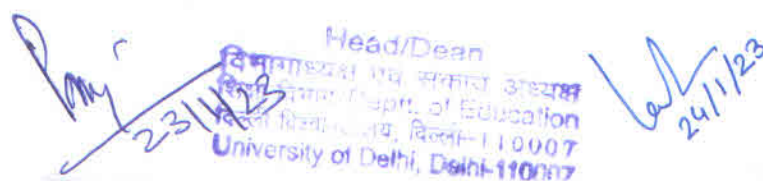 Head/Dean
विभागाध्यक्ष एवं संकाय अध्यक्ष
शिक्षा विभाग/Deptt. of Education
दिल्ली विश्वविद्यालय, दिल्ली-110007
University of Delhi, Delhi-110007
23/1/23
24/1/23